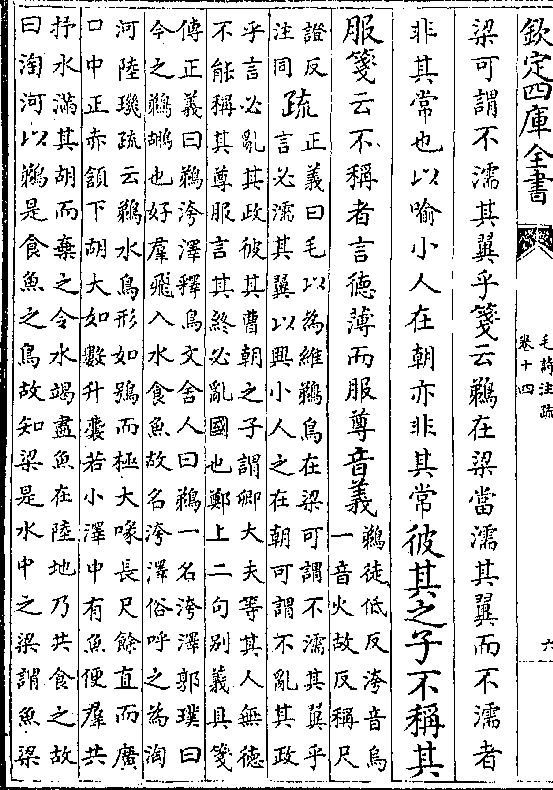 欽定四庫全書
毛詩注疏
卷十四
六
梁可謂不濡其翼乎箋云鵜在梁當濡其翼而不濡者
非其常也以喻小人在朝亦非其常彼其之子不稱其
服箋云不稱者言德薄而服尊音義
鵜徒低反洿音烏
一音火故反稱尺
證反
注同
疏
正義曰毛以為維鵜鳥在梁可謂不濡其翼乎
言必濡其翼以興小人之在朝可謂不亂其政
乎言必亂其政彼其曹朝之子謂卿大夫等其人無德
不能稱其尊服言其終必亂國也鄭上二句別義具箋
傳正義曰鵜洿澤釋鳥文舍人曰鵜一名洿澤郭璞曰
今之鵜鶘也好羣飛入水食魚故名洿澤俗呼之為淘
河陸璣疏云鵜水鳥形如鶚而極大喙長尺餘直而廣
口中正赤頷下胡大如數升囊若小澤中有魚便羣共
抒水滿其胡而棄之令水竭盡魚在陸地乃共食之故
曰淘河以鵜是食魚之鳥故知梁是水中之梁謂魚梁